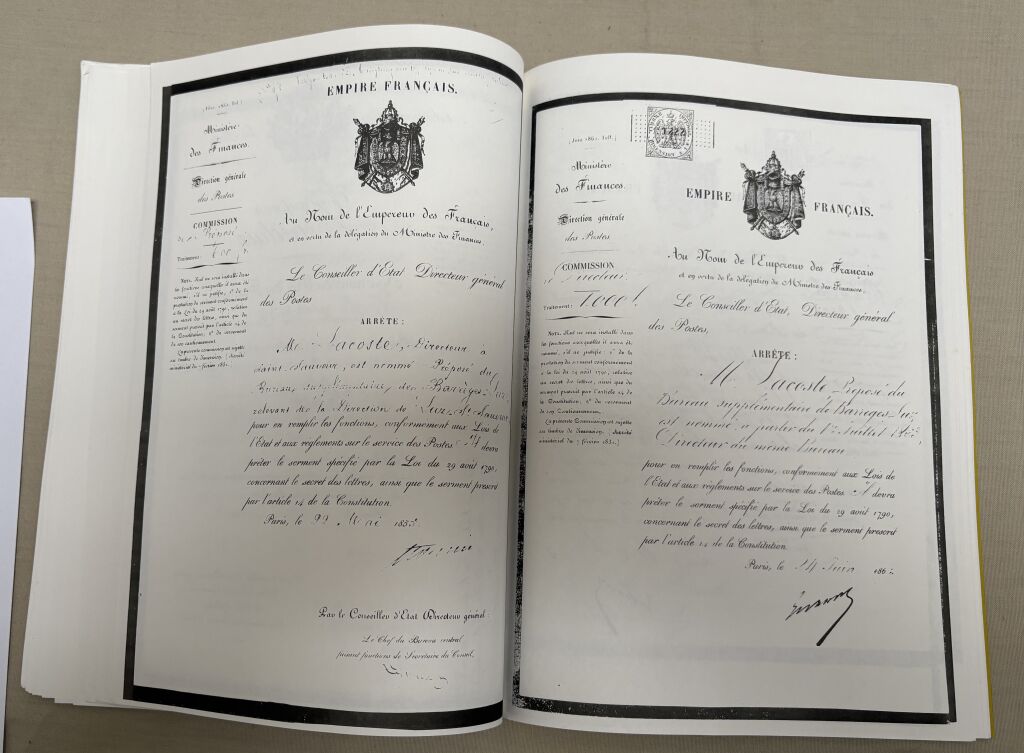 EMPIRE FRANÇAIS.
Ministère
des Finances.
Direction générale
des Postes
COMMISSION
de Préposé
Traitement:
NOTA. Il est ne sera installé dans
les fonctions auxquelles il a été
nommé, s'il ne justifie, 1° de la
prestation de serment conformément
à la loi du 29 août 1790, relative
au secret des lettres, ainsi que du
serment prescrit par l'article 14 de
la Constitution; 2° du versement
de son Cautionnement.
La présente commission est sujette
au timbre de dimension. (Arrêté
ministériel du 7 février 1832.)
Au Nom de l'Empereur des Français,
et en vertu de la délégation du Ministre des Finances,
Le Conseiller d'État, Directeur général
des Postes
ARRÊTE:
M. Lacoste, Directeur à
Saint-Sauveur, est nommé Préposé du
Bureau supplémentaire de Barèges-Luz
relevant de la Direction de Luz-St-Sauveur
pour en remplir les fonctions, conformément aux Lois de
l'État et aux règlements sur le service des Postes. Il devra
prêter le serment spécifié par la Loi du 29 août 1790,
concernant le secret des lettres, ainsi que le serment prescrit
par l'article 14 de la Constitution.
Paris, le Mai 185
Par le Conseiller d'État Directeur général:
Le Chef du Bureau central
faisant fonctions de Secrétaire du Conseil,
Ministère
des Finances.
Direction générale
des Postes
COMMISSION
de Directeur
Traitement: 1000 f.
NOTA. Il est ne sera installé dans
les fonctions auxquelles il a été
nommé, s'il ne justifie, 1° de la
prestation de serment conformément
à la loi du 29 août 1790, relative
au secret des lettres, ainsi que du
serment prescrit par l'article 14 de
la Constitution; 2° du versement
de son Cautionnement.
La présente commission est sujette
au timbre de dimension. (Arrêté
ministériel du 7 février 1832.)
EMPIRE FRANÇAIS.
Au Nom de l'Empereur des Français
et en vertu de la délégation du Ministre des Finances,
Le Conseiller d'État, Directeur général
des Postes,
ARRÊTE:
M. Lacoste Préposé du
Bureau supplémentaire de Barèges-Luz
est nommé, à partir du 1er Juillet
Directeur du même bureau
pour en remplir les fonctions, conformément aux Lois de
l'État et aux règlements sur le service des Postes. Il devra
prêter le serment spécifié par la Loi du 29 août 1790,
concernant le secret des lettres, ainsi que le serment prescrit
par l'article 14 de la Constitution.
Paris, le 24 Juin 186